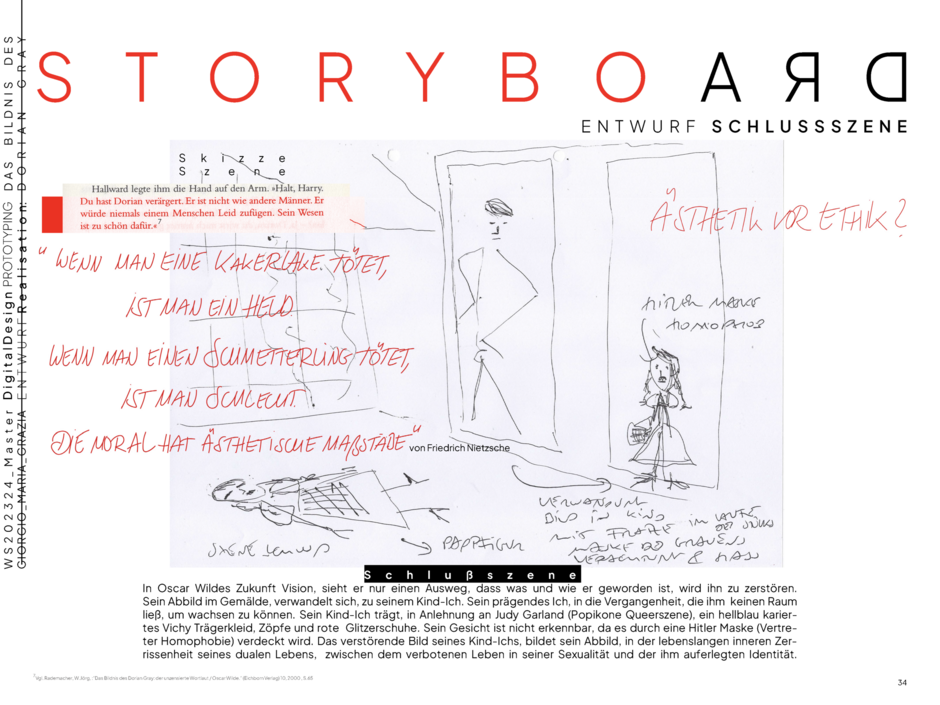 STORYBOARD
ENTWURF SCHLUSSSZENE
WS202324_Master DigitalDesign PROTOTYPING DAS BILDNIS DES
GIORGIO_MARIA_GRAZIA ENTWURF Realisation: DORIAN GRAY
Skizze
Szene
Hallward legte ihm die Hand auf den Arm. »Halt, Harry.
Du hast Dorian verärgert. Er ist nicht wie andere Männer. Er
würde niemals einem Menschen Leid zufügen. Sein Wesen
ist zu schön dafür.«7
ÄSTHETIK VOR ETHIK?
"WENN MAN EINE KAKERLAKE TÖTET,
IST MAN EIN HELD.
WENN MAN EINEN SCHMETTERLING TÖTET,
IST MAN SCHLECHT.
DIE MORAL HAT ÄSTHETISCHE MAßSTÄBE"
von Friedrich Nietzsche
HITLER MASKE
HOMOPHOB
PAPPFIGUR
BILD IN KIND
MASKE DES GRAUENS
Schlußszene
In Oscar Wildes Zukunft Vision, sieht er nur einen Ausweg, dass was und wie er geworden ist, wird ihn zu zerstören.
Sein Abbild im Gemälde, verwandelt sich, zu seinem Kind-Ich. Sein prägendes Ich, in die Vergangenheit, die ihm keinen Raum
ließ, um wachsen zu können. Sein Kind-Ich trägt, in Anlehnung an Judy Garland (Popikone Queerszene), ein hellblau karier-
tes Vichy Trägerkleid, Zöpfe und rote Glitzerschuhe. Sein Gesicht ist nicht erkennbar, da es durch eine Hitler Maske (Vertre-
ter Homophobie) verdeckt wird. Das verstörende Bild seines Kind-Ichs, bildet sein Abbild, in der lebenslangen inneren Zer-
rissenheit seines dualen Lebens, zwischen dem verbotenen Leben in seiner Sexualität und der ihm auferlegten Identität.
34